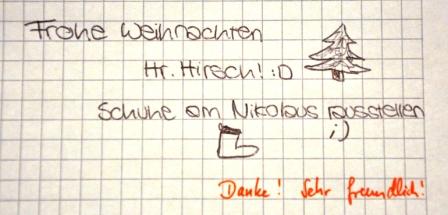 Frohe Weihnachten
Hr. Hirsch! :D
Schuhe am Nikolaus rausstellen
;)
Danke! Sehr freundlich!